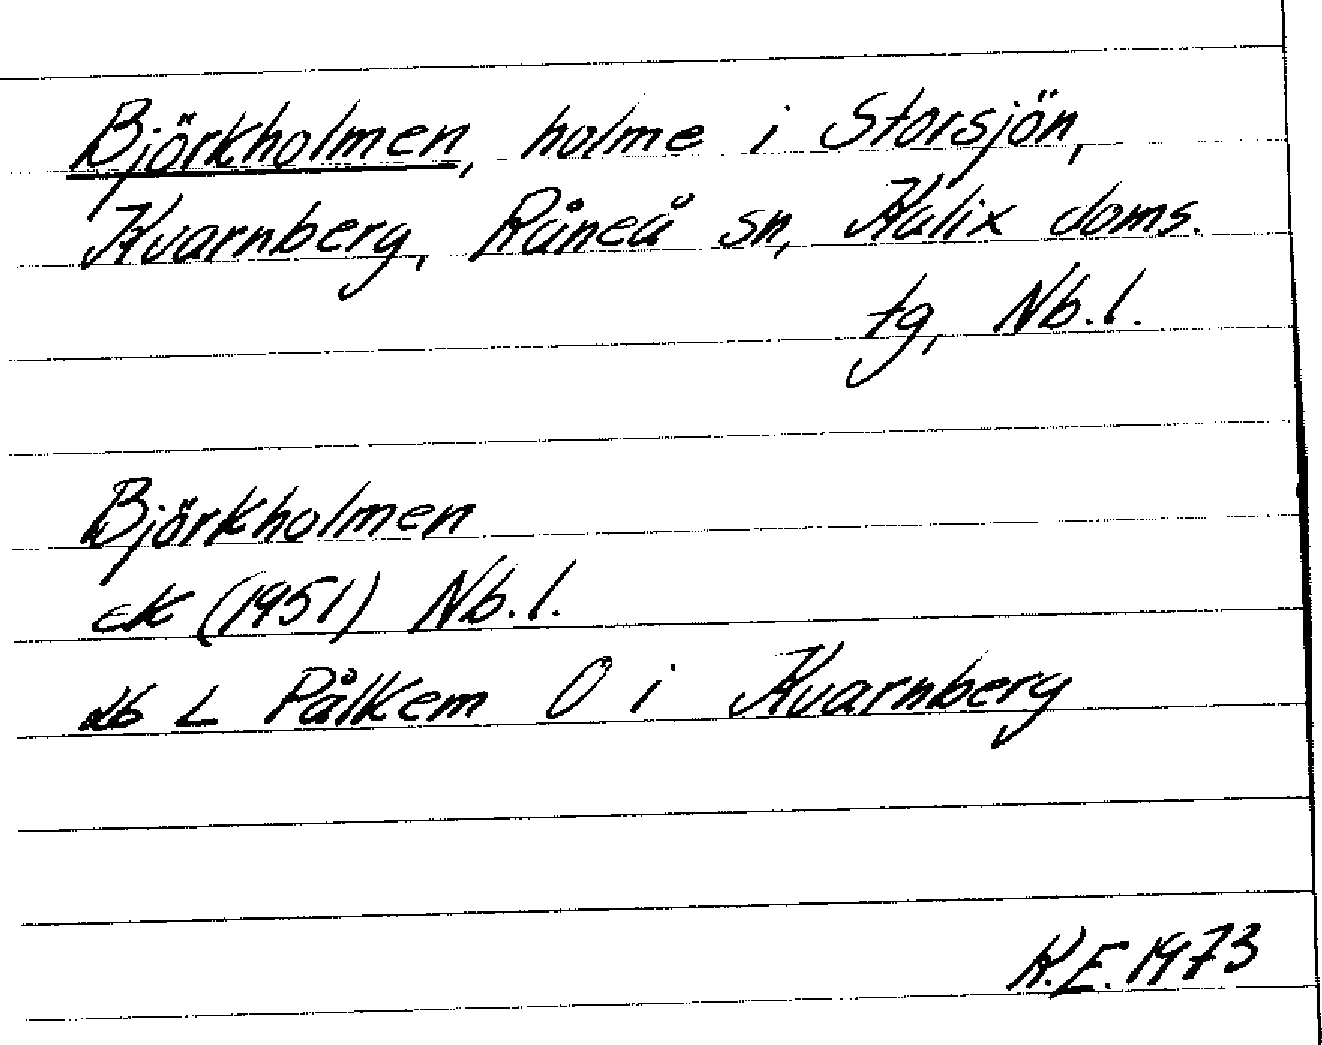 Björkholmen, holme i Storsjön,
Kvarnberg, Råneå sn, Kalix doms.
tg, Nb.l.
Björkholmen
ek (1951) Nb.l.
Nb L Pålkem O i Kvarnberg
K.E. 1973